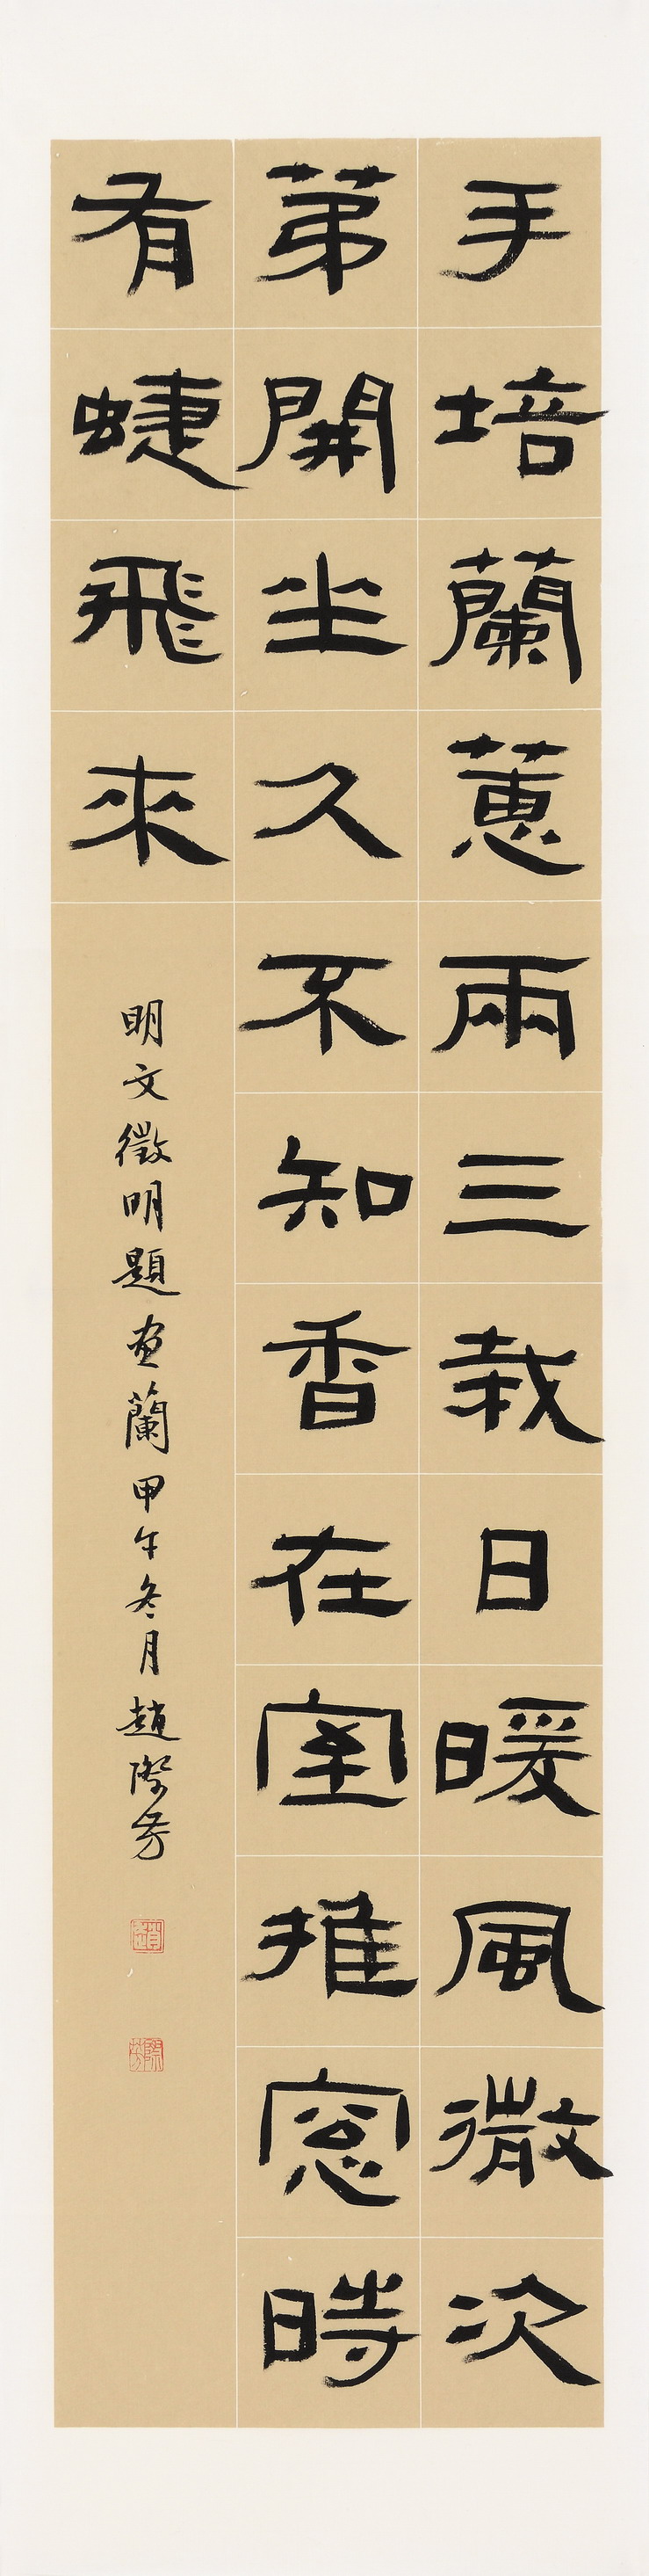 手培蘭蕙兩三栽日暖風微次
苐開坐久不知香在室推窓時
有蜨飛來
明文徵明題画蘭甲午冬月趙際芳